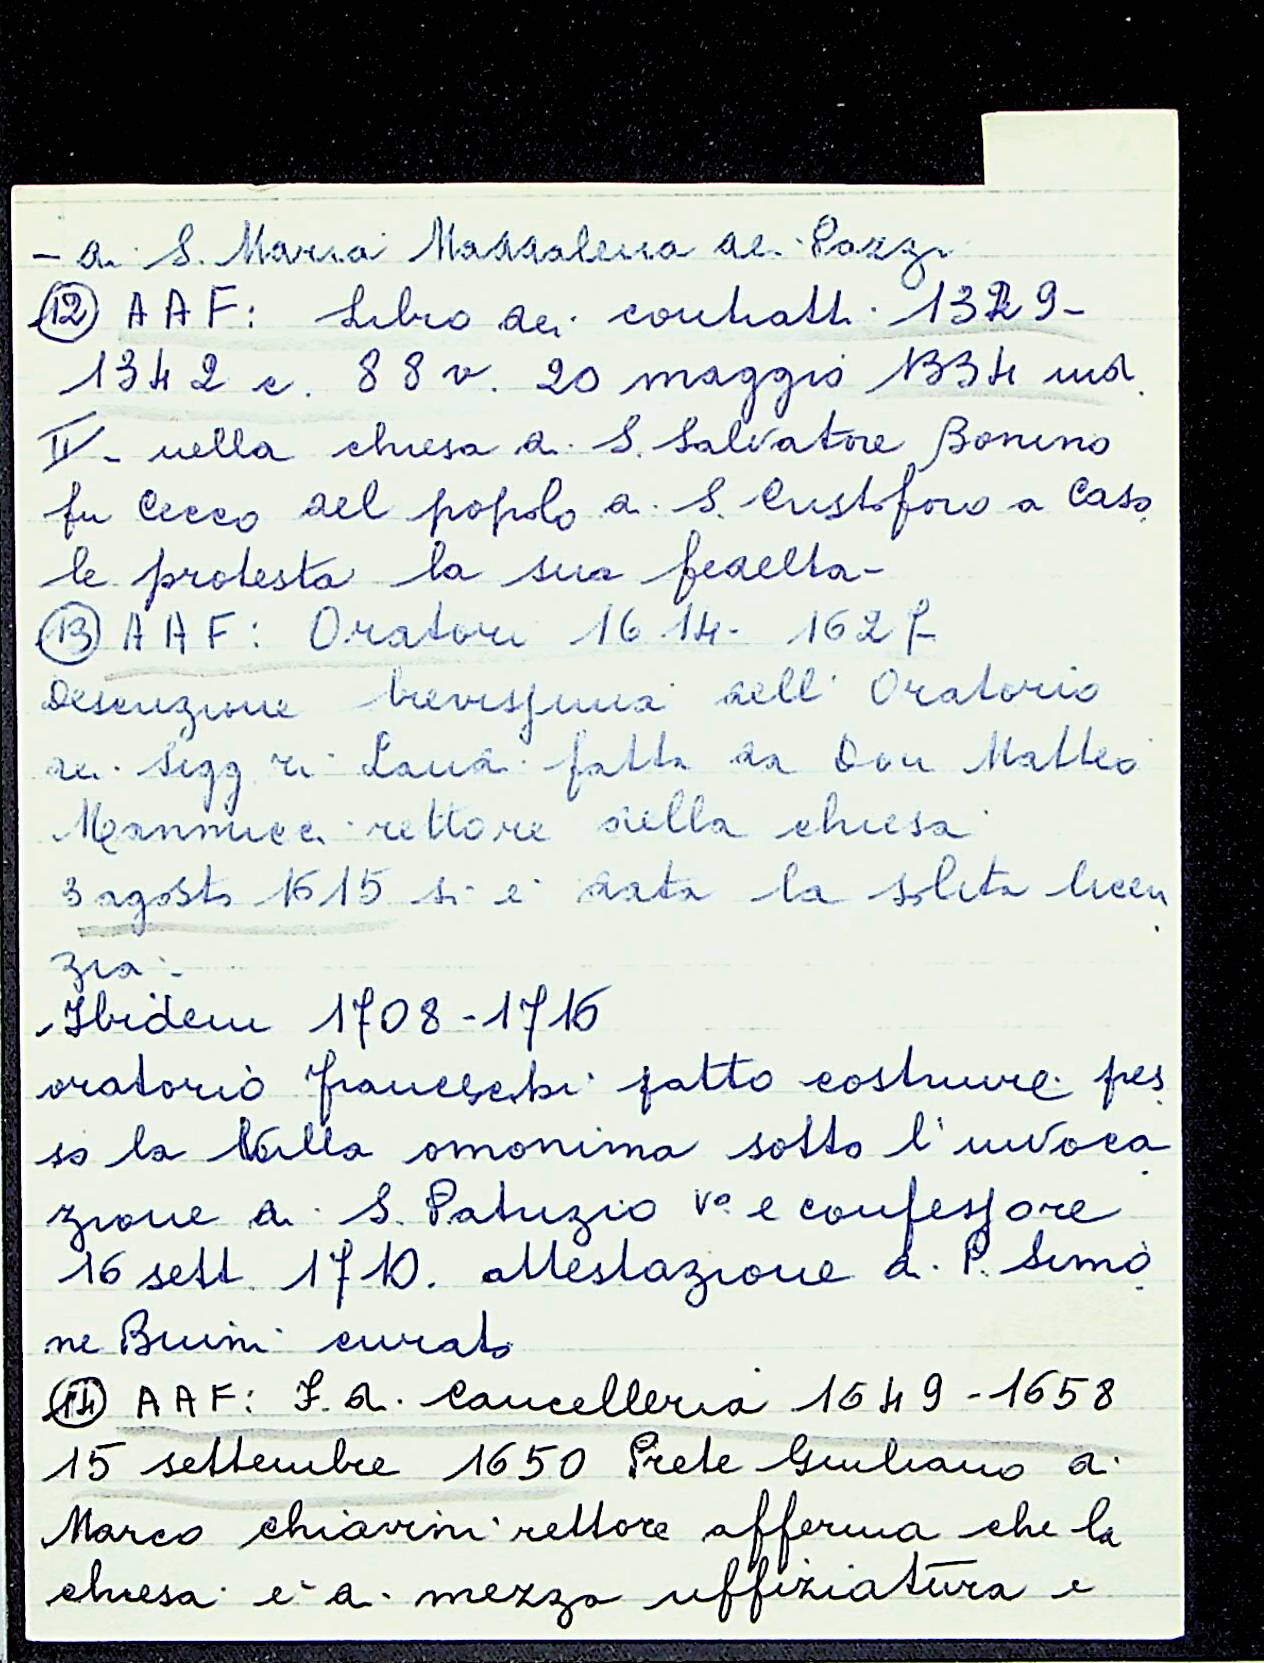 - di S. Maria Maddalena dei Pazzi
(12) AAF: Libro dei contratti 1329-
1342 c. 88 v. 20 maggio 1334 ind.
IV- nella chiesa di S. Salvatore Bonino
fu Cecco del popolo di S. Cristoforo a Casa
le protesta la sua fedeltà-
(13) AAF: Oratori 1614- 1627
Descrizione brevissima dell' Oratorio
dei Sigg ri Landi fatta da Don Matteo
Mannucci rettore della chiesa
3 agosto 1615 si è data la solita licen
zia.
Ibidem 1708-1716
oratorio Franceschi fatto costruire pres
so la Villa omonima sotto l'invoca
zione di S. Patrizio Vo e confessore
16 sett. 1710. attestazione di P. Simo
ne Buini curato
(14) AAF: F. di Cancelleria 1649-1658
15 settembre 1650 Prete Giuliano di
Marco Chiarini rettore afferma che la
chiesa è di mezza uffiziatura e